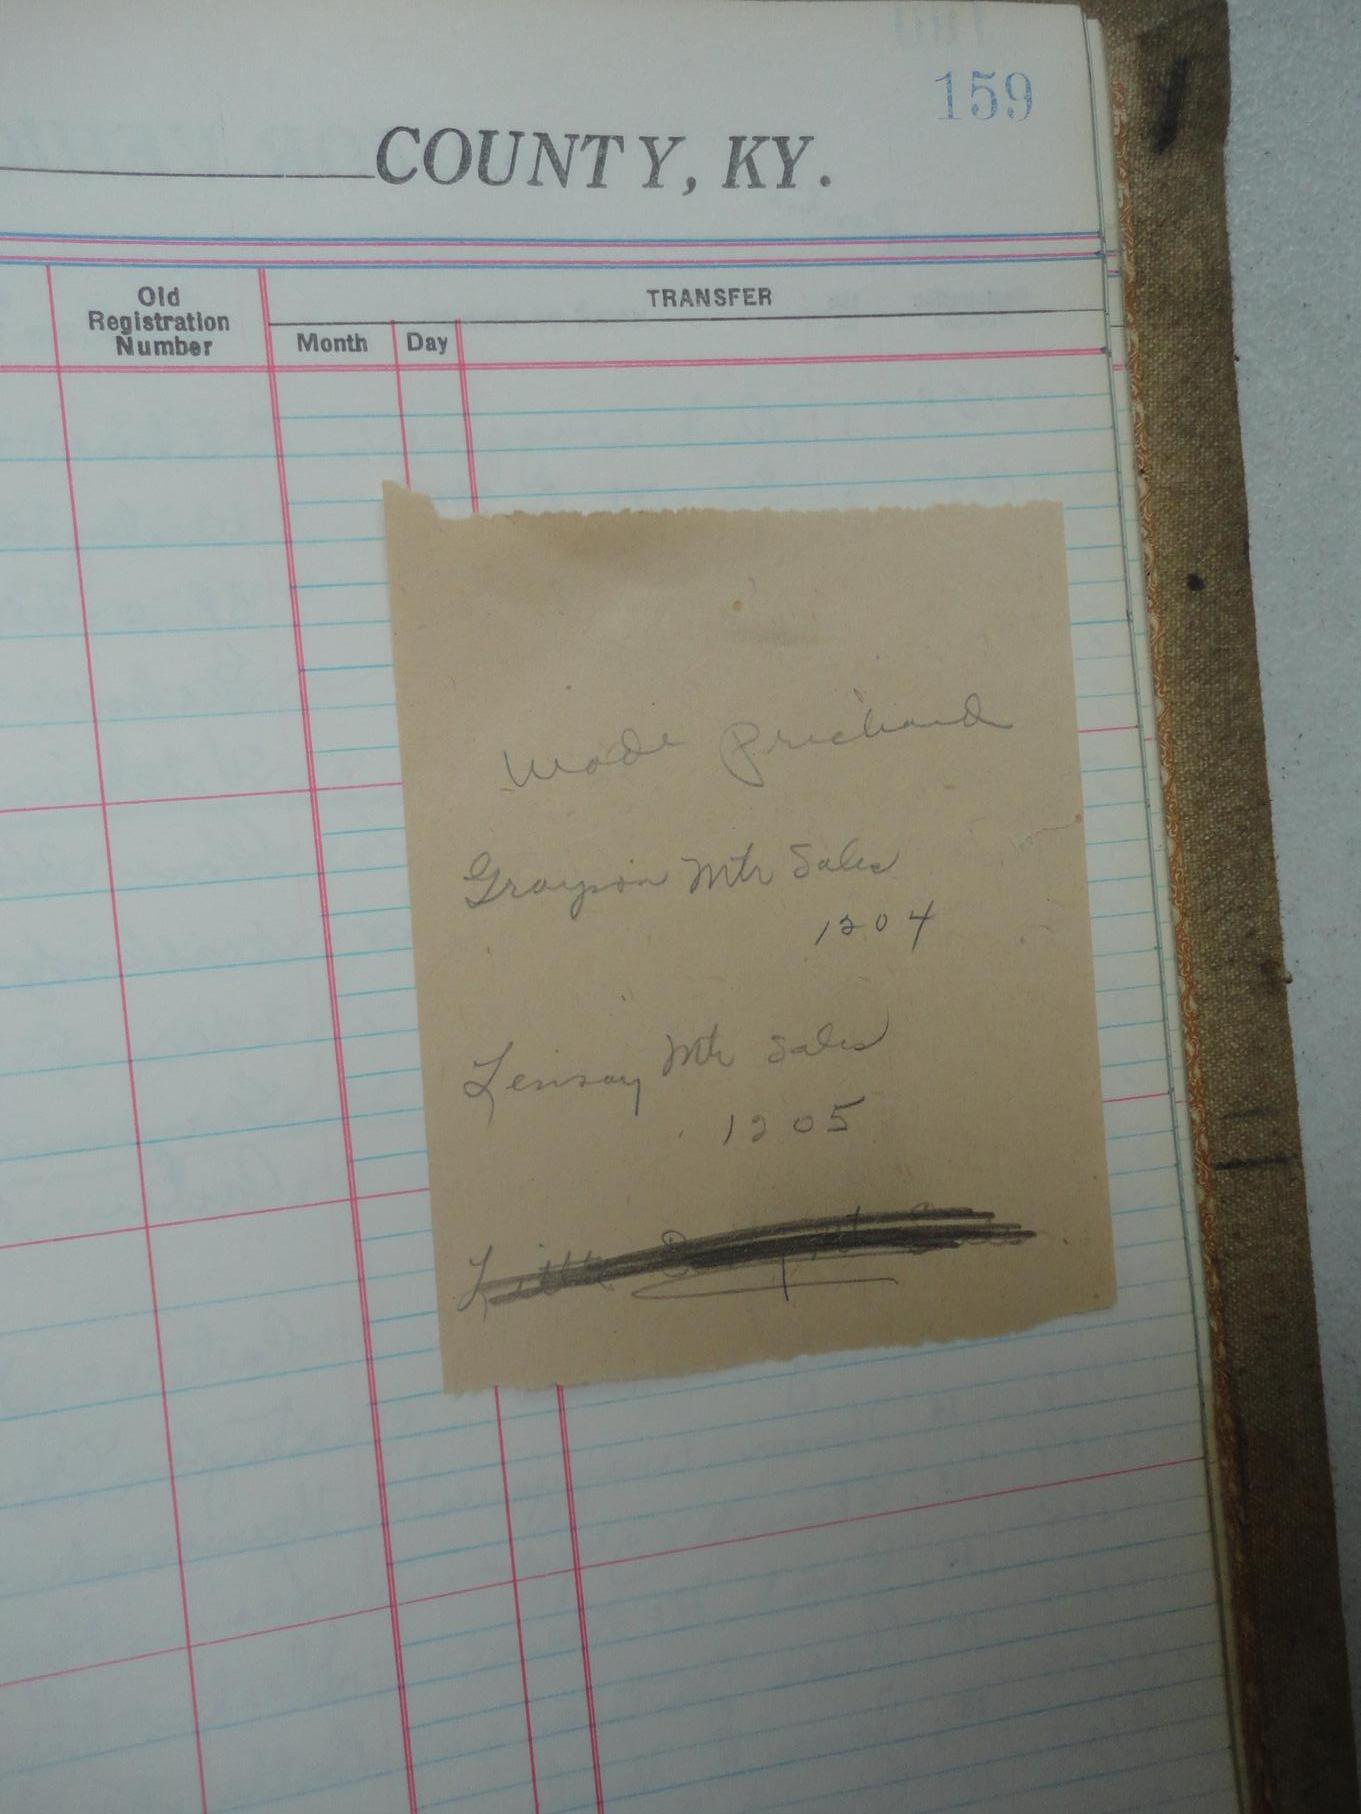 159
COUNTY, KY.
Old
Registration
Number
TRANSFER
Month
Day
Wade Prichard
Grayson Mtr Sales
1204
Lensay Mtr Sales
1205
Little